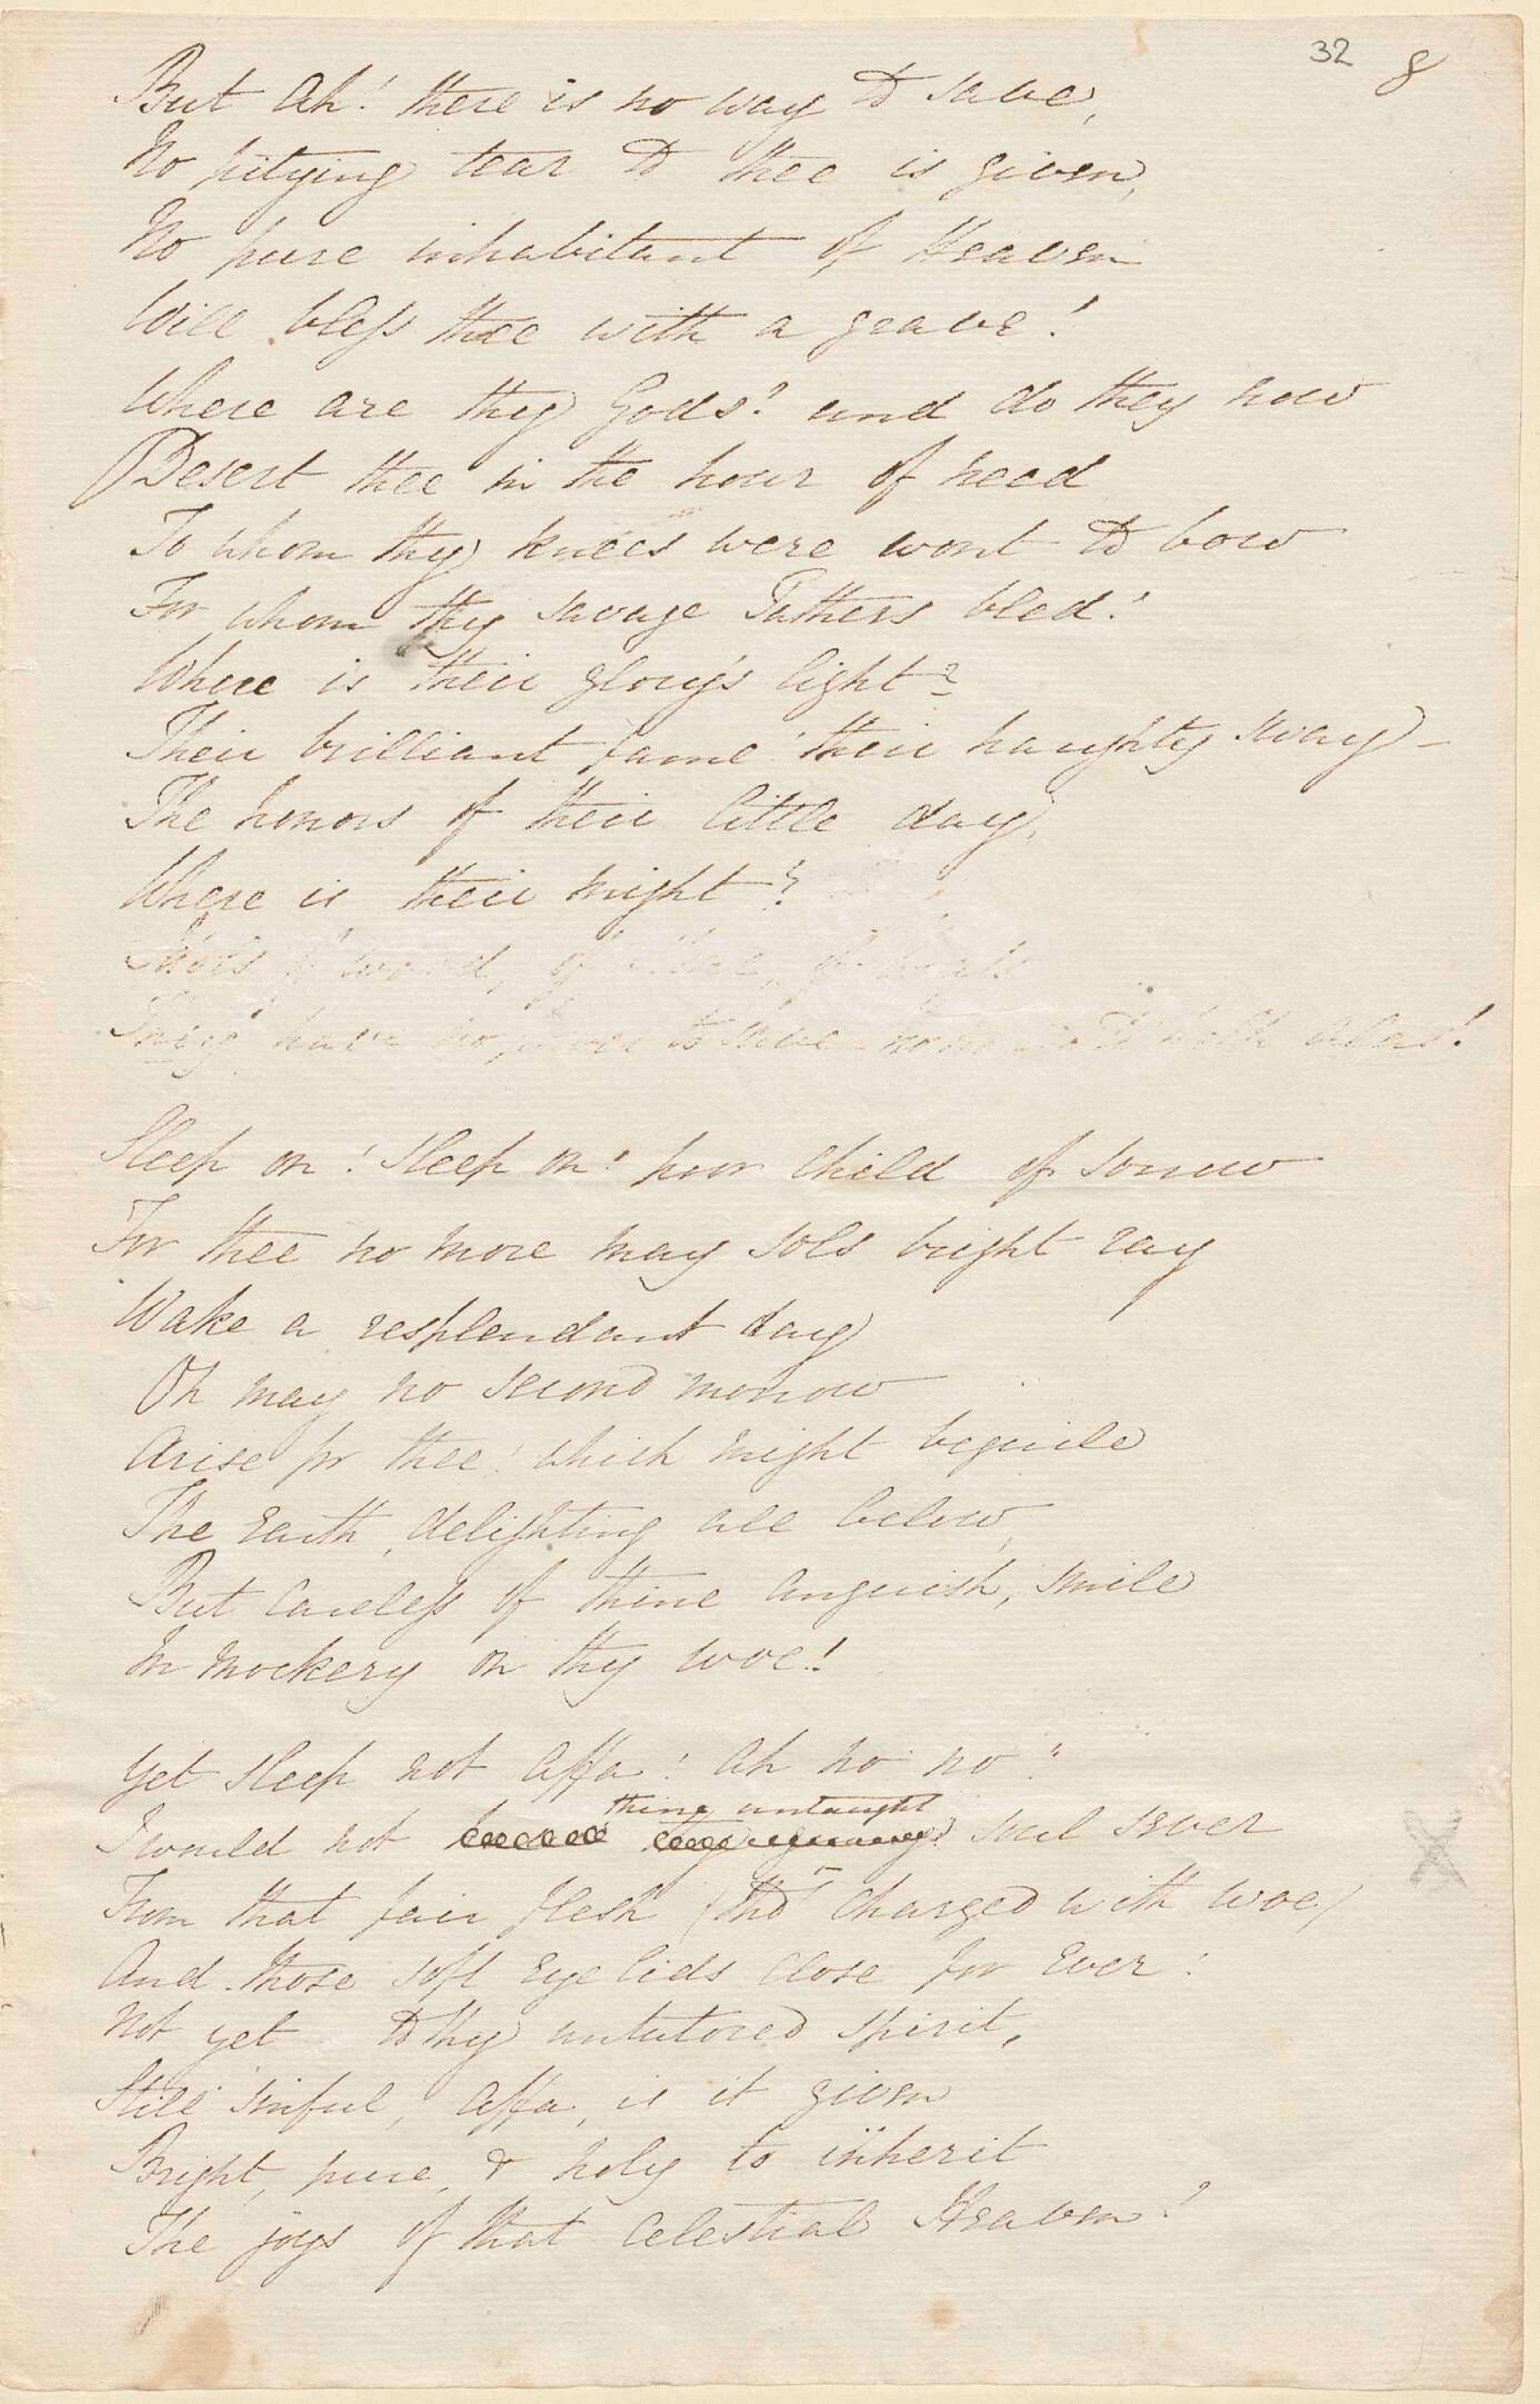 32 8
But Ah! there is no way to save,
No pitying tear to thee is given,
No pure inhabitant of Heaven
Will bless thee with a grave!
Where are thy Gods? and do they now
Desert thee in the hour of need
To whom thy knees were wont to bow
For whom thy savage Fathers bled!
Where is their glory's light?
Their brilliant fame! their haughty sway –
The honors of their little day,
Where is their might?
Idols of wood, of of
They have no power to save – to alas!
Sleep on! sleep on! poor child of sorrow
For thee no more may sols bright ray
Wake a resplendant day
Oh may no second morrow
Arise for thee! which might beguile
The Earth, delighting all below,
But careless of thine anguish, smile
In mockery on thy woe!
Yet sleep not Affa! Ah no no!
thine untaught
I would not soul sever
From that fair flesh (tho' charged with woe)
And those soft Eye lids close for Ever!
Not yet to thy untutored spirit,
Still sinful, Affa, is it given
Bright, pure, & holy to inherit
The joys of that Celestial Heaven!